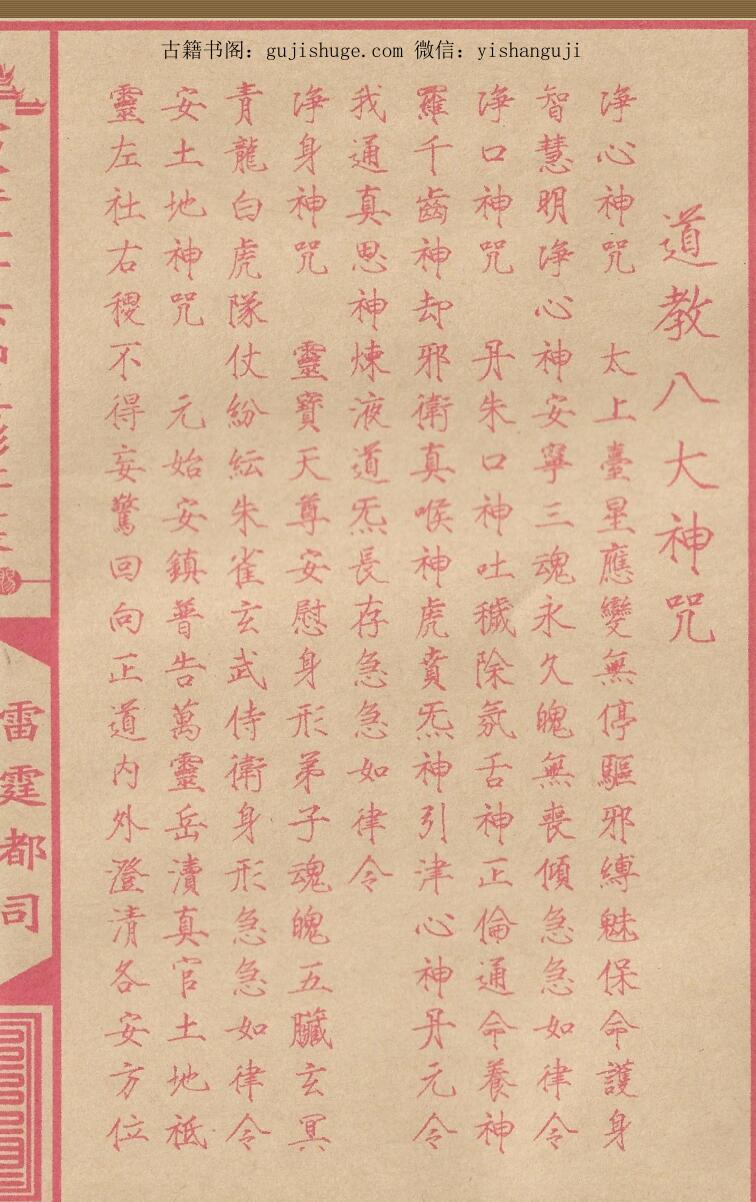 古籍书阁：gujishuge.com 微信：yishanguji
道教八大神咒
淨心神咒 太上臺星應變無停驅邪縛魅保命護身
智慧明淨心神安寧三魂永久魄無喪傾急急如律令
淨口神咒 丹朱口神吐穢除氛舌神正倫通命養神
羅千齒神却邪衛真喉神虎賁炁神引津心神丹元令
我通真思神煉液道炁長存急急如律令
淨身神咒 靈寶天尊安慰身形弟子魂魄五臟玄冥
青龍白虎隊仗紛紜朱雀玄武侍衛身形急急如律令
安土地神咒 元始安鎮普告萬靈岳瀆真官土地祇
靈左社右稷不得妄驚回向正道内外澄清各安方位
雷霆都司